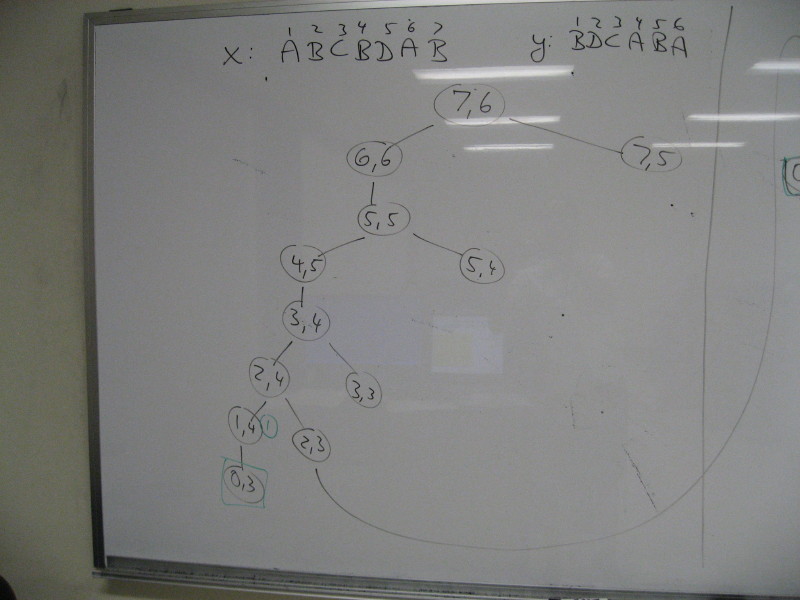 1 2 3 4 5 6 7 1 2 3 4 5 6
X: A B C B D A B y: B D C A B A
7,6
6,6 7,5
5,5
4,5 5,4
3,4
2,4 3,3
1,4 1 2,3
0,3